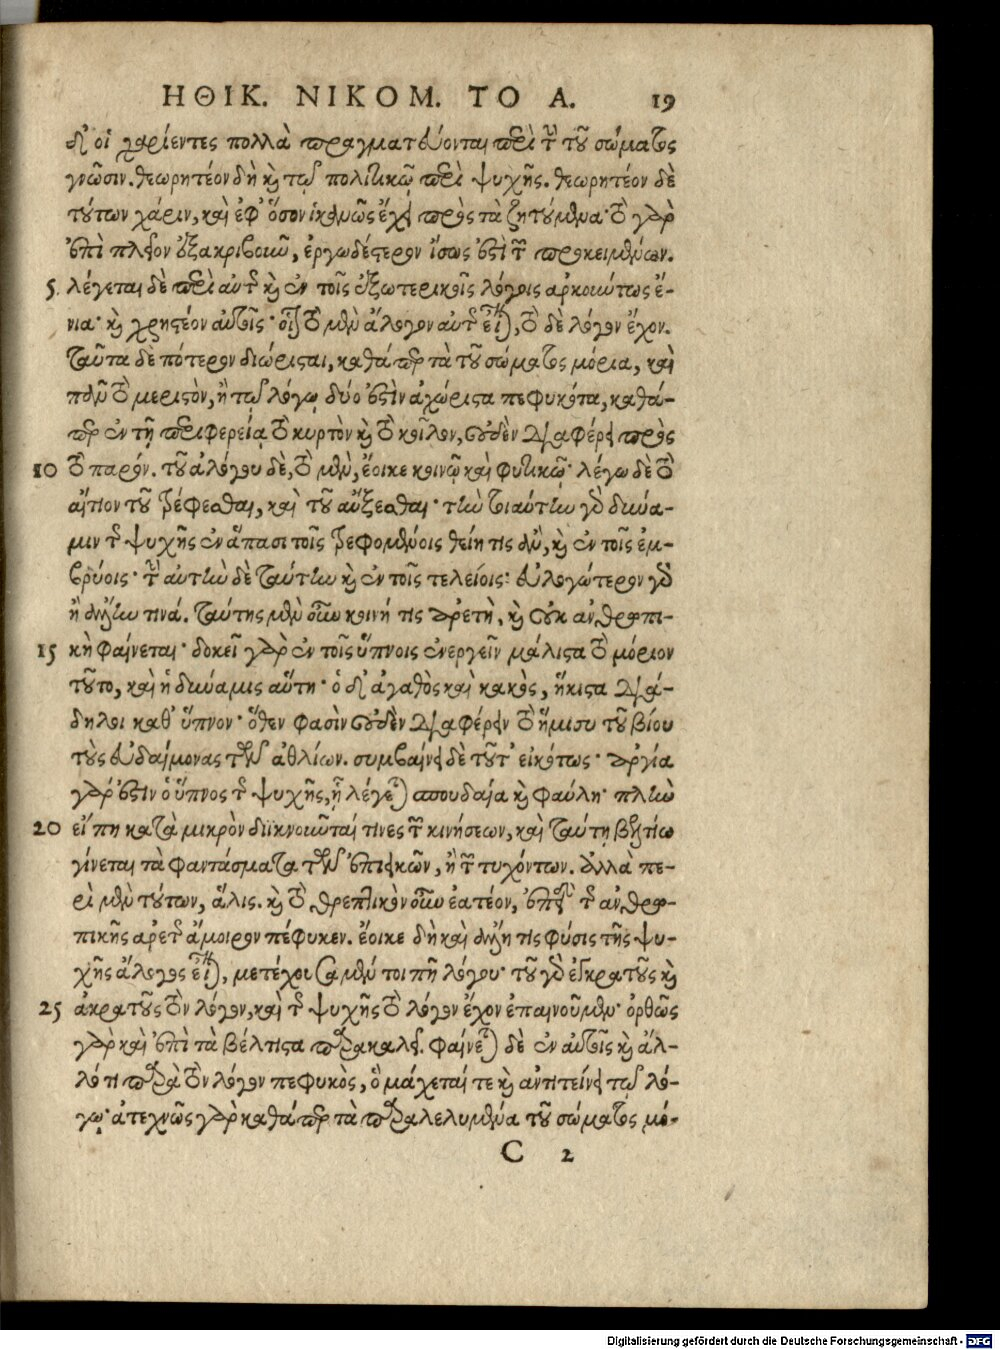 ΗΘΙΚ. ΝΙΚΟΜ. ΤΟ Α. 19
δ' οἱ χαρίεντες πολλὰ πραγματεύονται περὶ τὴν τοῦ σώματος
γνῶσιν. θεωρητέον δὴ καὶ τῷ πολιτικῷ περὶ ψυχῆς. θεωρητέον δὲ
τούτων χάριν, καὶ ἐφ' ὅσον ἱκανῶς ἔχει πρὸς τὰ ζητούμενα· τὸ γὰρ
ἐπὶ πλεῖον ἐξακριβοῦν, ἐργωδέστερον ἴσως ἐστὶ τῶν προκειμένων.
5. λέγεται δὲ περὶ αὐτῆς καὶ ἐν τοῖς ἐξωτερικοῖς λόγοις ἀρκούντως ἔ-
νια· καὶ χρηστέον αὐτοῖς· οἷον τὸ μὲν ἄλογον αὐτῆς εἶναι, τὸ δὲ λόγον ἔχον.
ταῦτα δὲ πότερον διώρισται, καθάπερ τὰ τοῦ σώματος μόρια, καὶ
πᾶν τὸ μεριστὸν, ἢ τῷ λόγῳ δύο ἐστὶν ἀχώριστα πεφυκότα, καθά-
περ ἐν τῇ περιφερείᾳ τὸ κυρτὸν καὶ τὸ κοῖλον, οὐδὲν διαφέρει πρὸς
10 τὸ παρόν. τοῦ ἀλόγου δὲ, τὸ μὲν, ἔοικε κοινῷ καὶ φυτικῷ· λέγω δὲ τὸ
αἴτιον τοῦ τρέφεσθαι, καὶ τοῦ αὔξεσθαι· τὴν τοιαύτην γὰρ δύνα-
μιν τῆς ψυχῆς ἐν ἅπασι τοῖς τρεφομένοις θείη τις ἂν, καὶ ἐν τοῖς ἐμ-
βρύοις· τὴν αὐτὴν δὲ ταύτην καὶ ἐν τοῖς τελείοις· εὐλογώτερον γὰρ
ἢ ἄλλην τινά. ταύτης μὲν οὖν κοινή τις ἀρετὴ, καὶ οὐκ ἀνθρωπι-
15 κὴ φαίνεται· δοκεῖ γὰρ ἐν τοῖς ὕπνοις ἐνεργεῖν μάλιστα τὸ μόριον
τοῦτο, καὶ ἡ δύναμις αὕτη· ὁ δ' ἀγαθὸς καὶ κακὸς, ἥκιστα διά-
δηλοι καθ' ὕπνον· ὅθεν φασὶν οὐδὲν διαφέρειν τὸ ἥμισυ τοῦ βίου
τοὺς εὐδαίμονας τῶν ἀθλίων. συμβαίνει δὲ τοῦτ' εἰκότως· ἀργία
γάρ ἐστιν ὁ ὕπνος τῆς ψυχῆς, ᾗ λέγεται σπουδαία καὶ φαύλη· πλὴν
20 εἴ πῃ κατὰ μικρὸν διικνοῦνταί τινες τῶν κινήσεων, καὶ ταύτῃ βελτίω
γίνεται τὰ φαντάσματα τῶν ἐπιεικῶν, ἢ τῶν τυχόντων. ἀλλὰ πε-
ρὶ μὲν τούτων, ἅλις. καὶ τὸ θρεπτικὸν οὖν ἐατέον, ἐπειδὴ τῆς ἀνθρω-
πικῆς ἀρετῆς ἄμοιρον πέφυκεν. ἔοικε δὴ καὶ ἄλλη τις φύσις τῆς ψυ-
χῆς ἄλογος εἶναι, μετέχουσα μέν τοι πῇ λόγου· τοῦ γὰρ ἐγκρατοῦς καὶ
25 ἀκρατοῦς τὸν λόγον, καὶ τῆς ψυχῆς τὸ λόγον ἔχον ἐπαινοῦμεν· ὀρθῶς
γὰρ καὶ ἐπὶ τὰ βέλτιστα παρακαλεῖ. φαίνεται δὲ ἐν αὐτοῖς καὶ ἄλ-
λό τι παρὰ τὸν λόγον πεφυκὸς, ὃ μάχεταί τε καὶ ἀντιτείνει τῷ λό-
γῳ· ἀτεχνῶς γὰρ καθάπερ τὰ παραλελυμένα τοῦ σώματος μό-
C 2
Digitalisierung gefördert durch die Deutsche Forschungsgemeinschaft - DFG